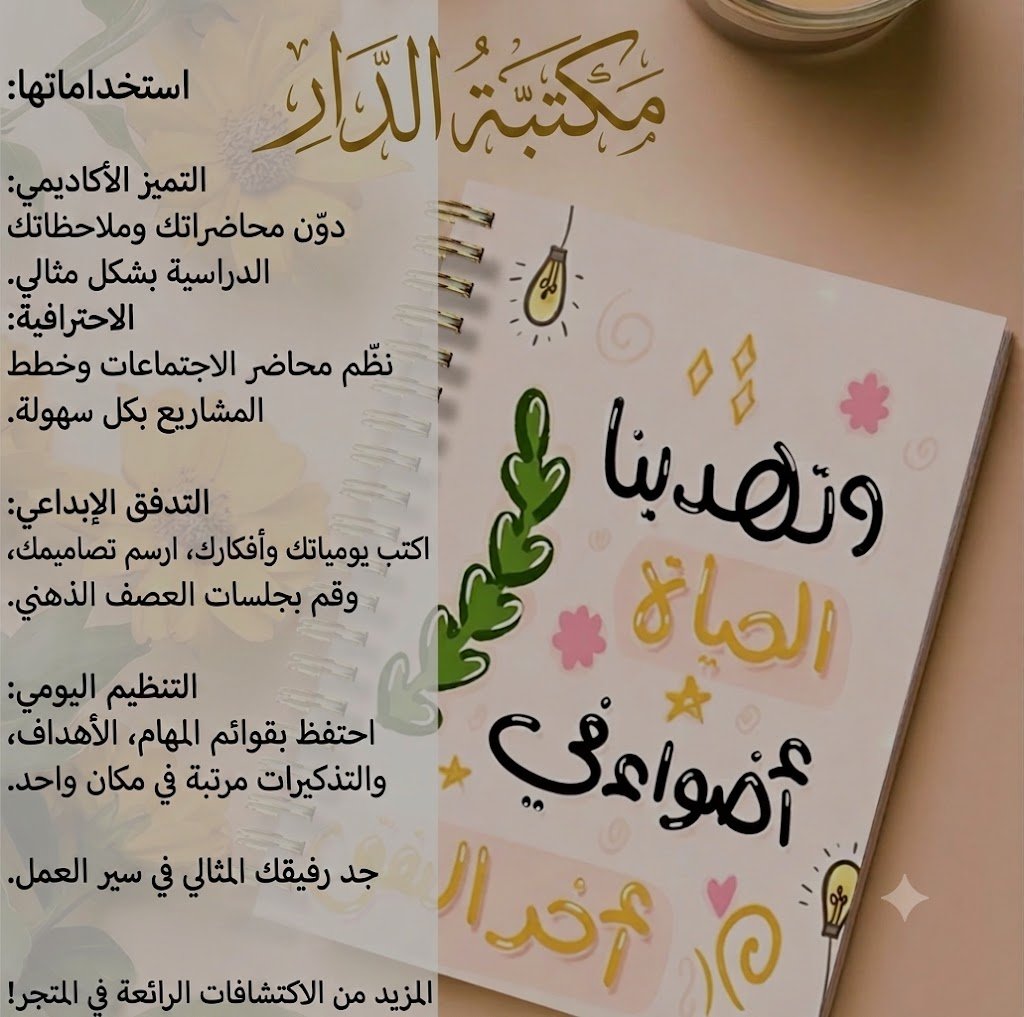 مَكْتَبَّةُ الدَّارِ
استخداماتها:
التميز الأكاديمي:
دوّن محاضراتك وملاحظاتك
الدراسية بشكل مثالي.
الاحترافية:
نظّم محاضر الاجتماعات وخطط
المشاريع بكل سهولة.
التدفق الإبداعي:
اكتب يومياتك وأفكارك، ارسم تصاميمك،
وقم بجلسات العصف الذهني.
التنظيم اليومي:
احتفظ بقوائم المهام، الأهداف،
والتذكيرات مرتبة في مكان واحد.
جد رفيقك المثالي في سير العمل.
المزيد من الاكتشافات الرائعة في المتجر!
وتهدينا
الحياة
أضواء في
أخر النفق